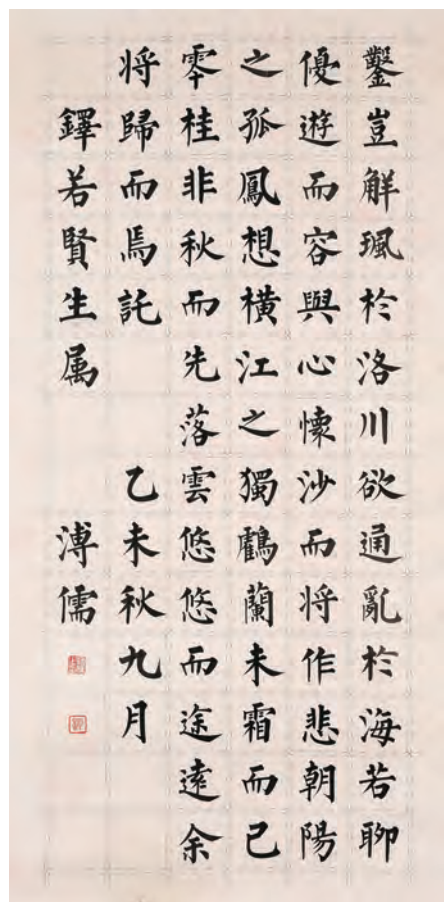 鑿豈解珮於洛川欲通亂於海若聊
優遊而容與心懐沙而将作悲朝陽
之孤鳳想横江之獨鶴蘭未霜而已
零桂非秋而先落雲悠悠而途遠余
将歸而焉託 乙未秋九月
鐸若賢生属 溥儒